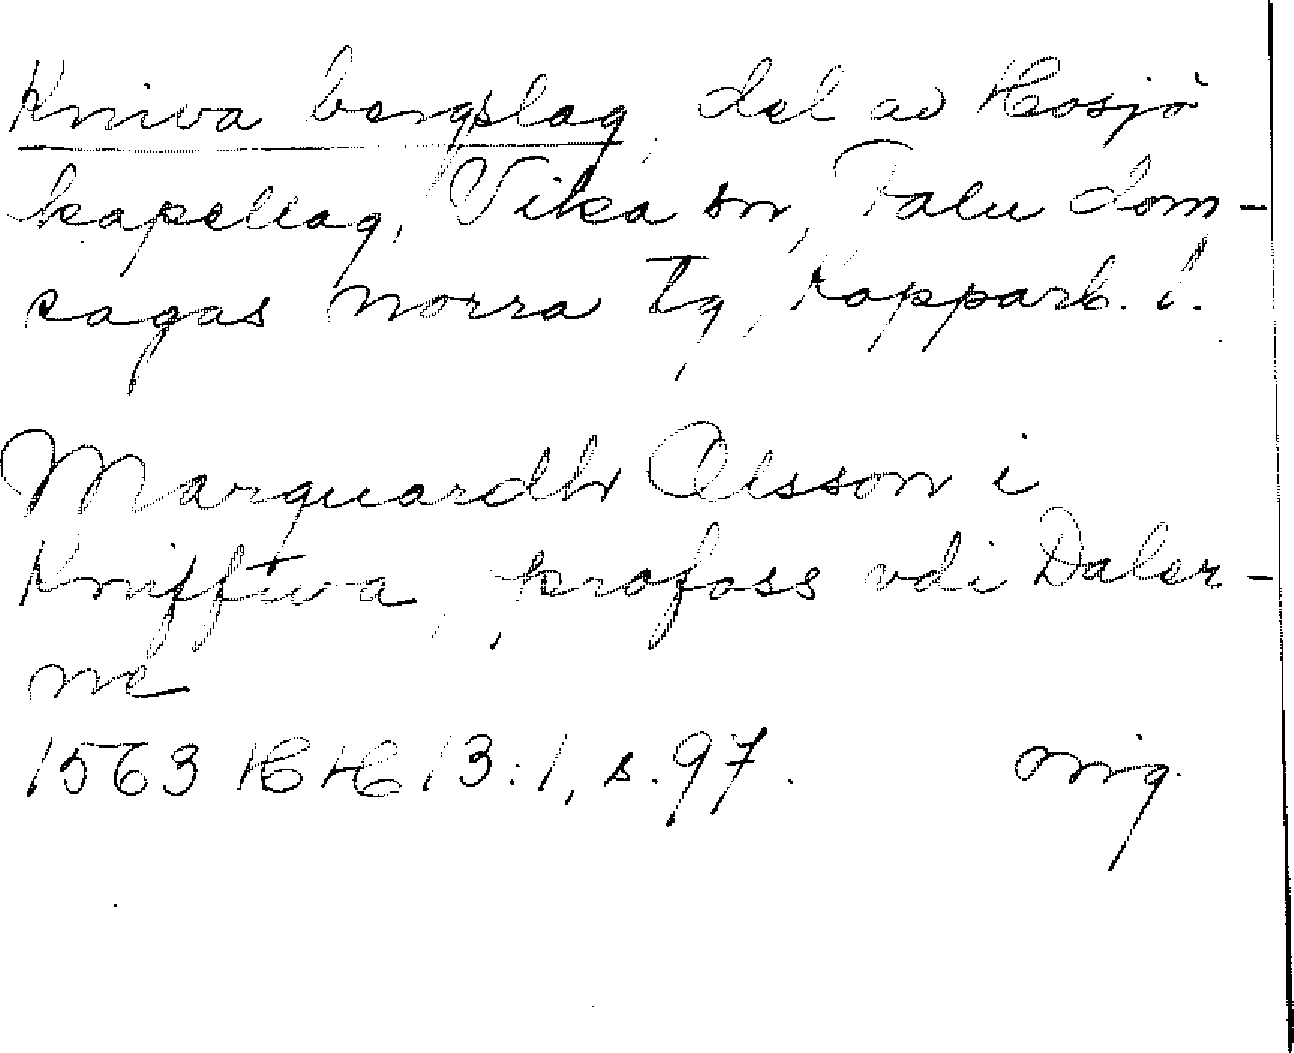 Kniva bergslag, del av Hosjö
kapellag, Vika sn, Falu dom-
sagas norra tg, Kopparb. l.
Marquardh Olsson i
Kniffwa, profoss vdi Daler-
ne
1563 HH 13:1, s. 97. orig.